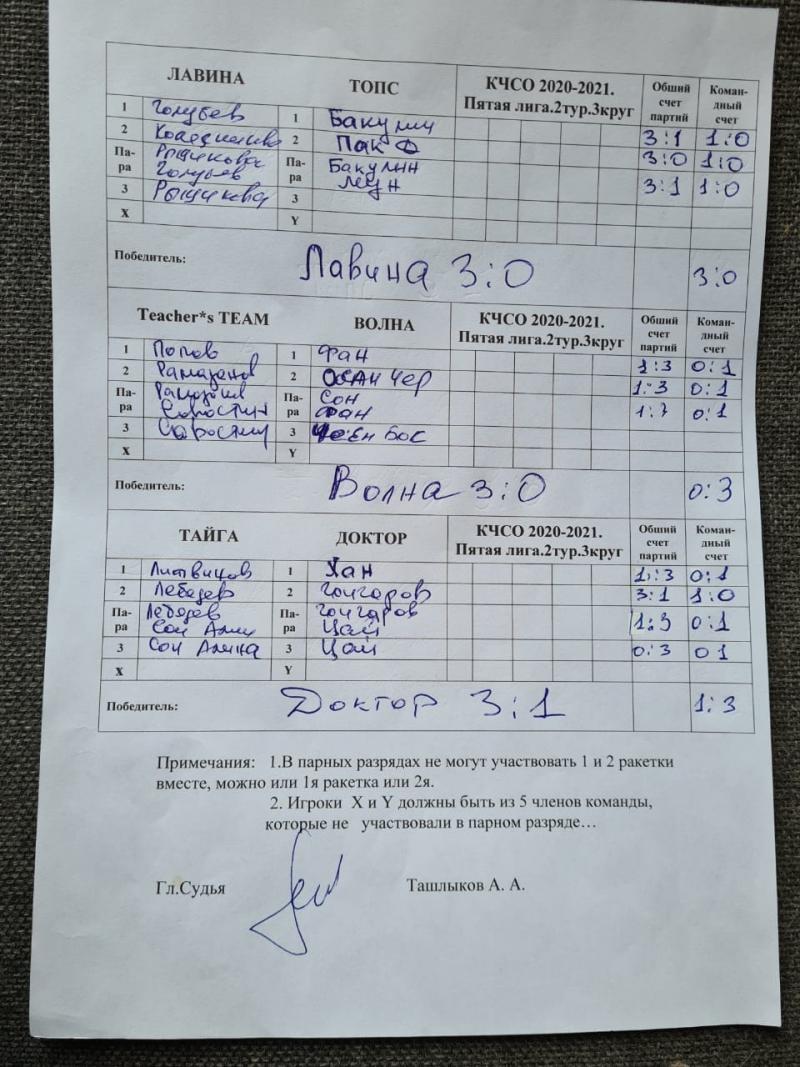 ЛАВИНА ТОПС КЧСО 2020-2021. Пятая лига.2тур.3круг Общий счет партий Коман-дный счет
1 Голубев 1 Бакулин 3:1 1:0
2 2 Пак Ф 3:0 1:0
Па-ра Рыщикова Голубев Па-ра Бакулин 3:1 1:0
3 Рыщикова 3
X Y
Победитель: Лавина 3:0 3:0
Teacher*s TEAM ВОЛНА КЧСО 2020-2021. Пятая лига.2тур.3круг Общий счет партий Коман-дный счет
1 Попов 1 Фан 1:3 0:1
2 Рамазанов 2 1:3 0:1
Па-ра Па-ра Сон Фан 0:1
3 3
X Y
Победитель: Волна 3:0 0:3
ТАЙГА ДОКТОР КЧСО 2020-2021. Пятая лига.2тур.3круг Общий счет партий Коман-дный счет
1 Литвинов 1 Хан 1:3 0:1
2 Лебедев 2 Гончаров 3:1 1:0
Па-ра Лебедев Сон Алин Па-ра Гончаров Цай 1:3 0:1
3 Сон Алина 3 Цай 0:3 0 1
X Y
Победитель: Доктор 3:1 1:3
Примечания: 1.В парных разрядах не могут участвовать 1 и 2 ракетки
вместе, можно или 1я ракетка или 2я.
2. Игроки X и Y должны быть из 5 членов команды,
которые не участвовали в парном разряде…
Гл.Судья Ташлыков А. А.